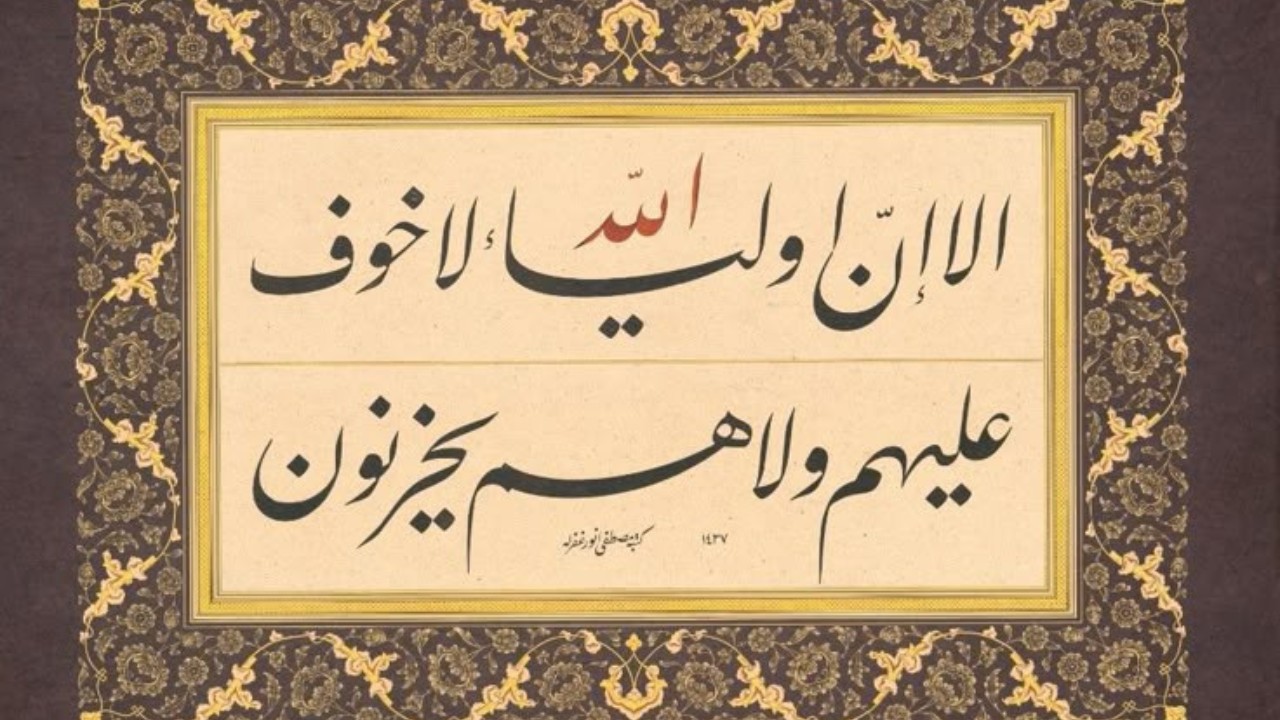 الا إنّ اولياء اللّه لا خوف
عليهم ولا هم يحزنون
كتبه مصطفى انور غفرله ١٤٣٧